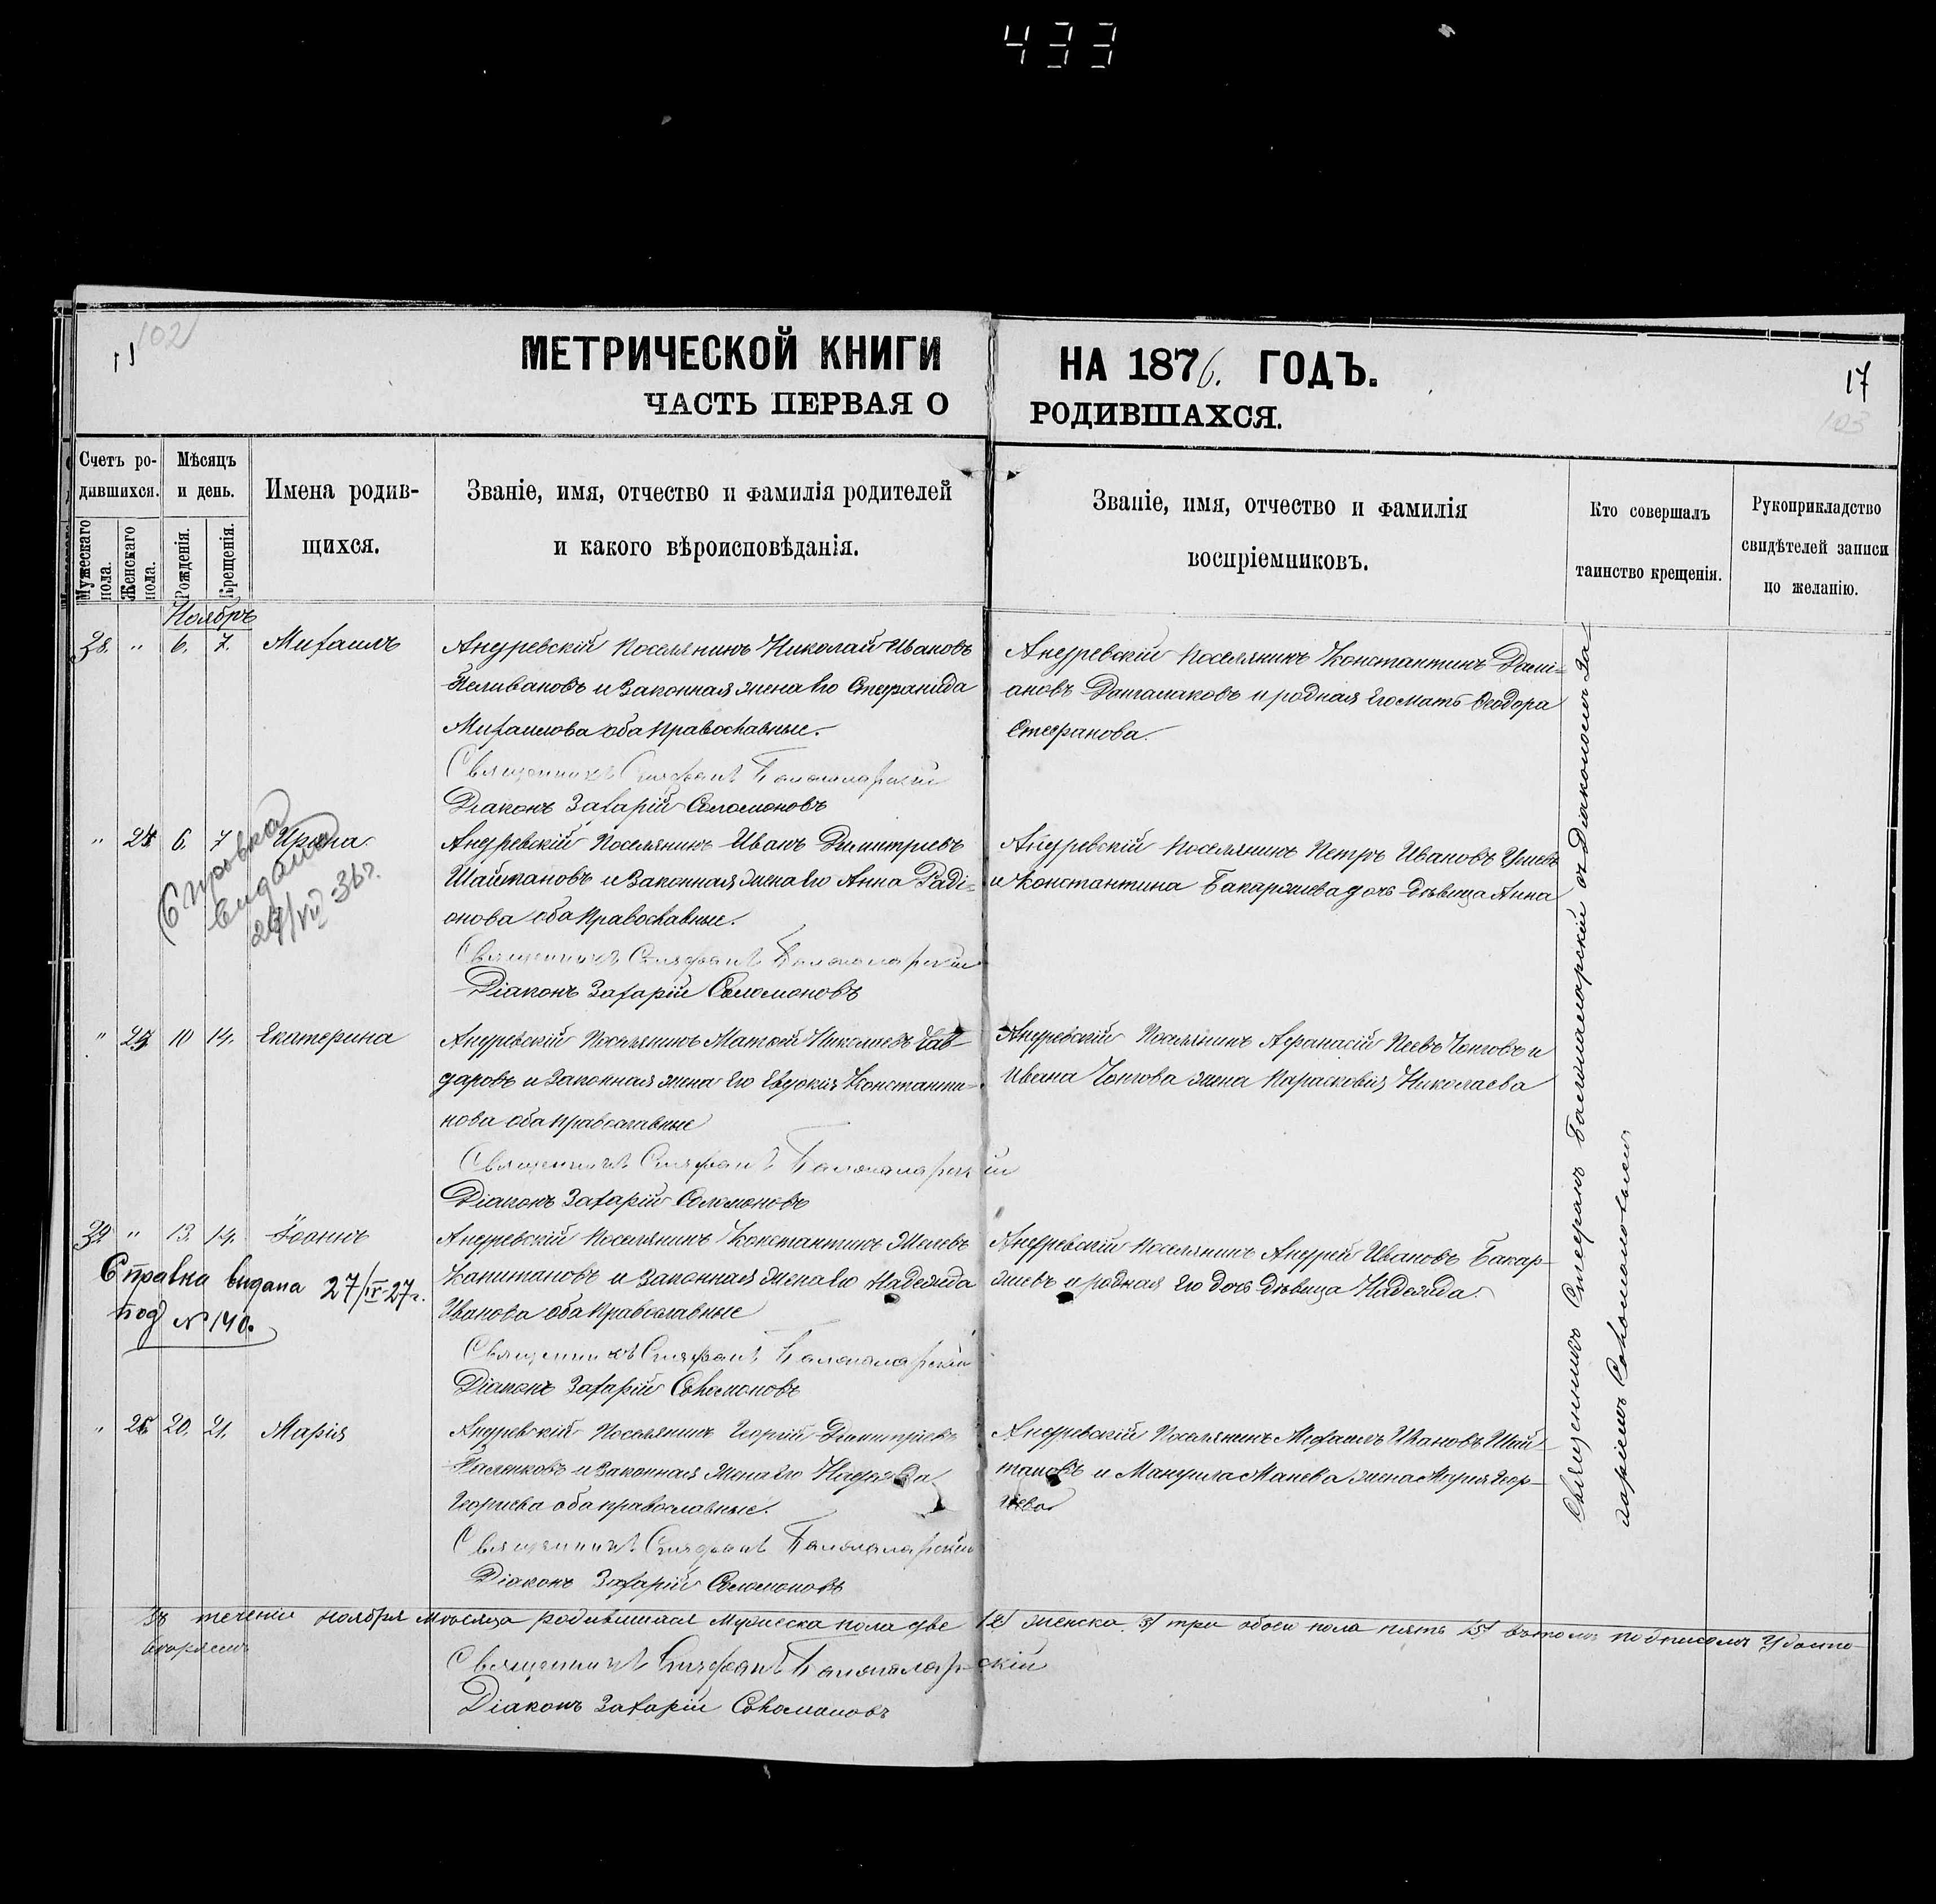 433
102
17
МЕТРИЧЕСКОЙ КНИГИ НА 1876. ГОДЪ.
103
ЧАСТЬ ПЕРВАЯ О РОДИВШАХСЯ.
Счетъ ро-
дившихся.
Мужескаго пола.
Женскаго пола.
Мѣсяцъ
и день.
Рожденія.
Крещенія.
Имена родив-
щихся.
Званіе, имя, отчество и фамилія родителей
и какого вѣроисповѣданія.
Званіе, имя, отчество и фамилія
воспріемниковъ.
Кто совершалъ
таинство крещенія.
Рукоприкладство
свидѣтелей записи
по желанію.
Ноябрь
38. " 6. 7. Михаилъ
Андревскій Поселянинъ Николай Ивановъ
Пеливановъ и Законная жена его Стефанида
Михаилова оба православные.
Священникъ Стефанъ
Діаконъ Захарій Соломоновъ
Андревскій Поселянинъ Константинъ Дамі-
ановъ и родная его мать Феодора
Стефанова.
" 24 6. 7 Ирина
Справка
видана
36 г.
Андревскій Поселянинъ Иванъ Димитріевъ
Шайтановъ и Законная жена его Анна Раді-
онова оба православные.
Священникъ Стефанъ
Діаконъ Захарій Соломоновъ
Андревскій Поселянинъ Петръ Ивановъ
и Константина дочь дѣвица Анна
" 10 14. Екатерина
Андревскій Поселянинъ Николаевъ Гай-
даровъ и Законная жена Его Евдокія Константи-
нова оба православные
Священникъ Стефанъ
Діаконъ Захарій Соломоновъ
Андревскій Поселянинъ Афанасій и
Ивана жена Парасковія Николаева
39 " 13. 14. Іоаннъ
Справка видана 27/IV-27 г.
под № 140.
Андревскій Поселянинъ Константинъ Желевъ
Капитановъ и Законная жена его Надежда
Иванова оба православные
Священникъ Стефанъ
Діаконъ Захарій Соломоновъ
Андревскій Поселянинъ Андрей Ивановъ Бакар-
жиевъ и родная Его дочь дѣвица Надежда.
" 20. 21. Марія
Андревскій Поселянинъ Георгій Димитріевъ
и Законная жена Его
Георгіева оба православные.
Священникъ Стефанъ
Діаконъ Захарій Соломоновъ
Андревскій Поселянинъ Михаилъ Ивановъ Шай-
тановъ и жена Марія Геор-
гіева
Священникъ Стефанъ съ Діакономъ За-
харіемъ Соломоновымъ
Въ теченіи ноября мѣсяца родившихся мужеска пола две /2/ женска /3/ три обоего пола пять /5/ въ томъ подписомъ Удосто-
вѣряемъ
Священникъ Стефанъ
Діаконъ Захарій Соломоновъ